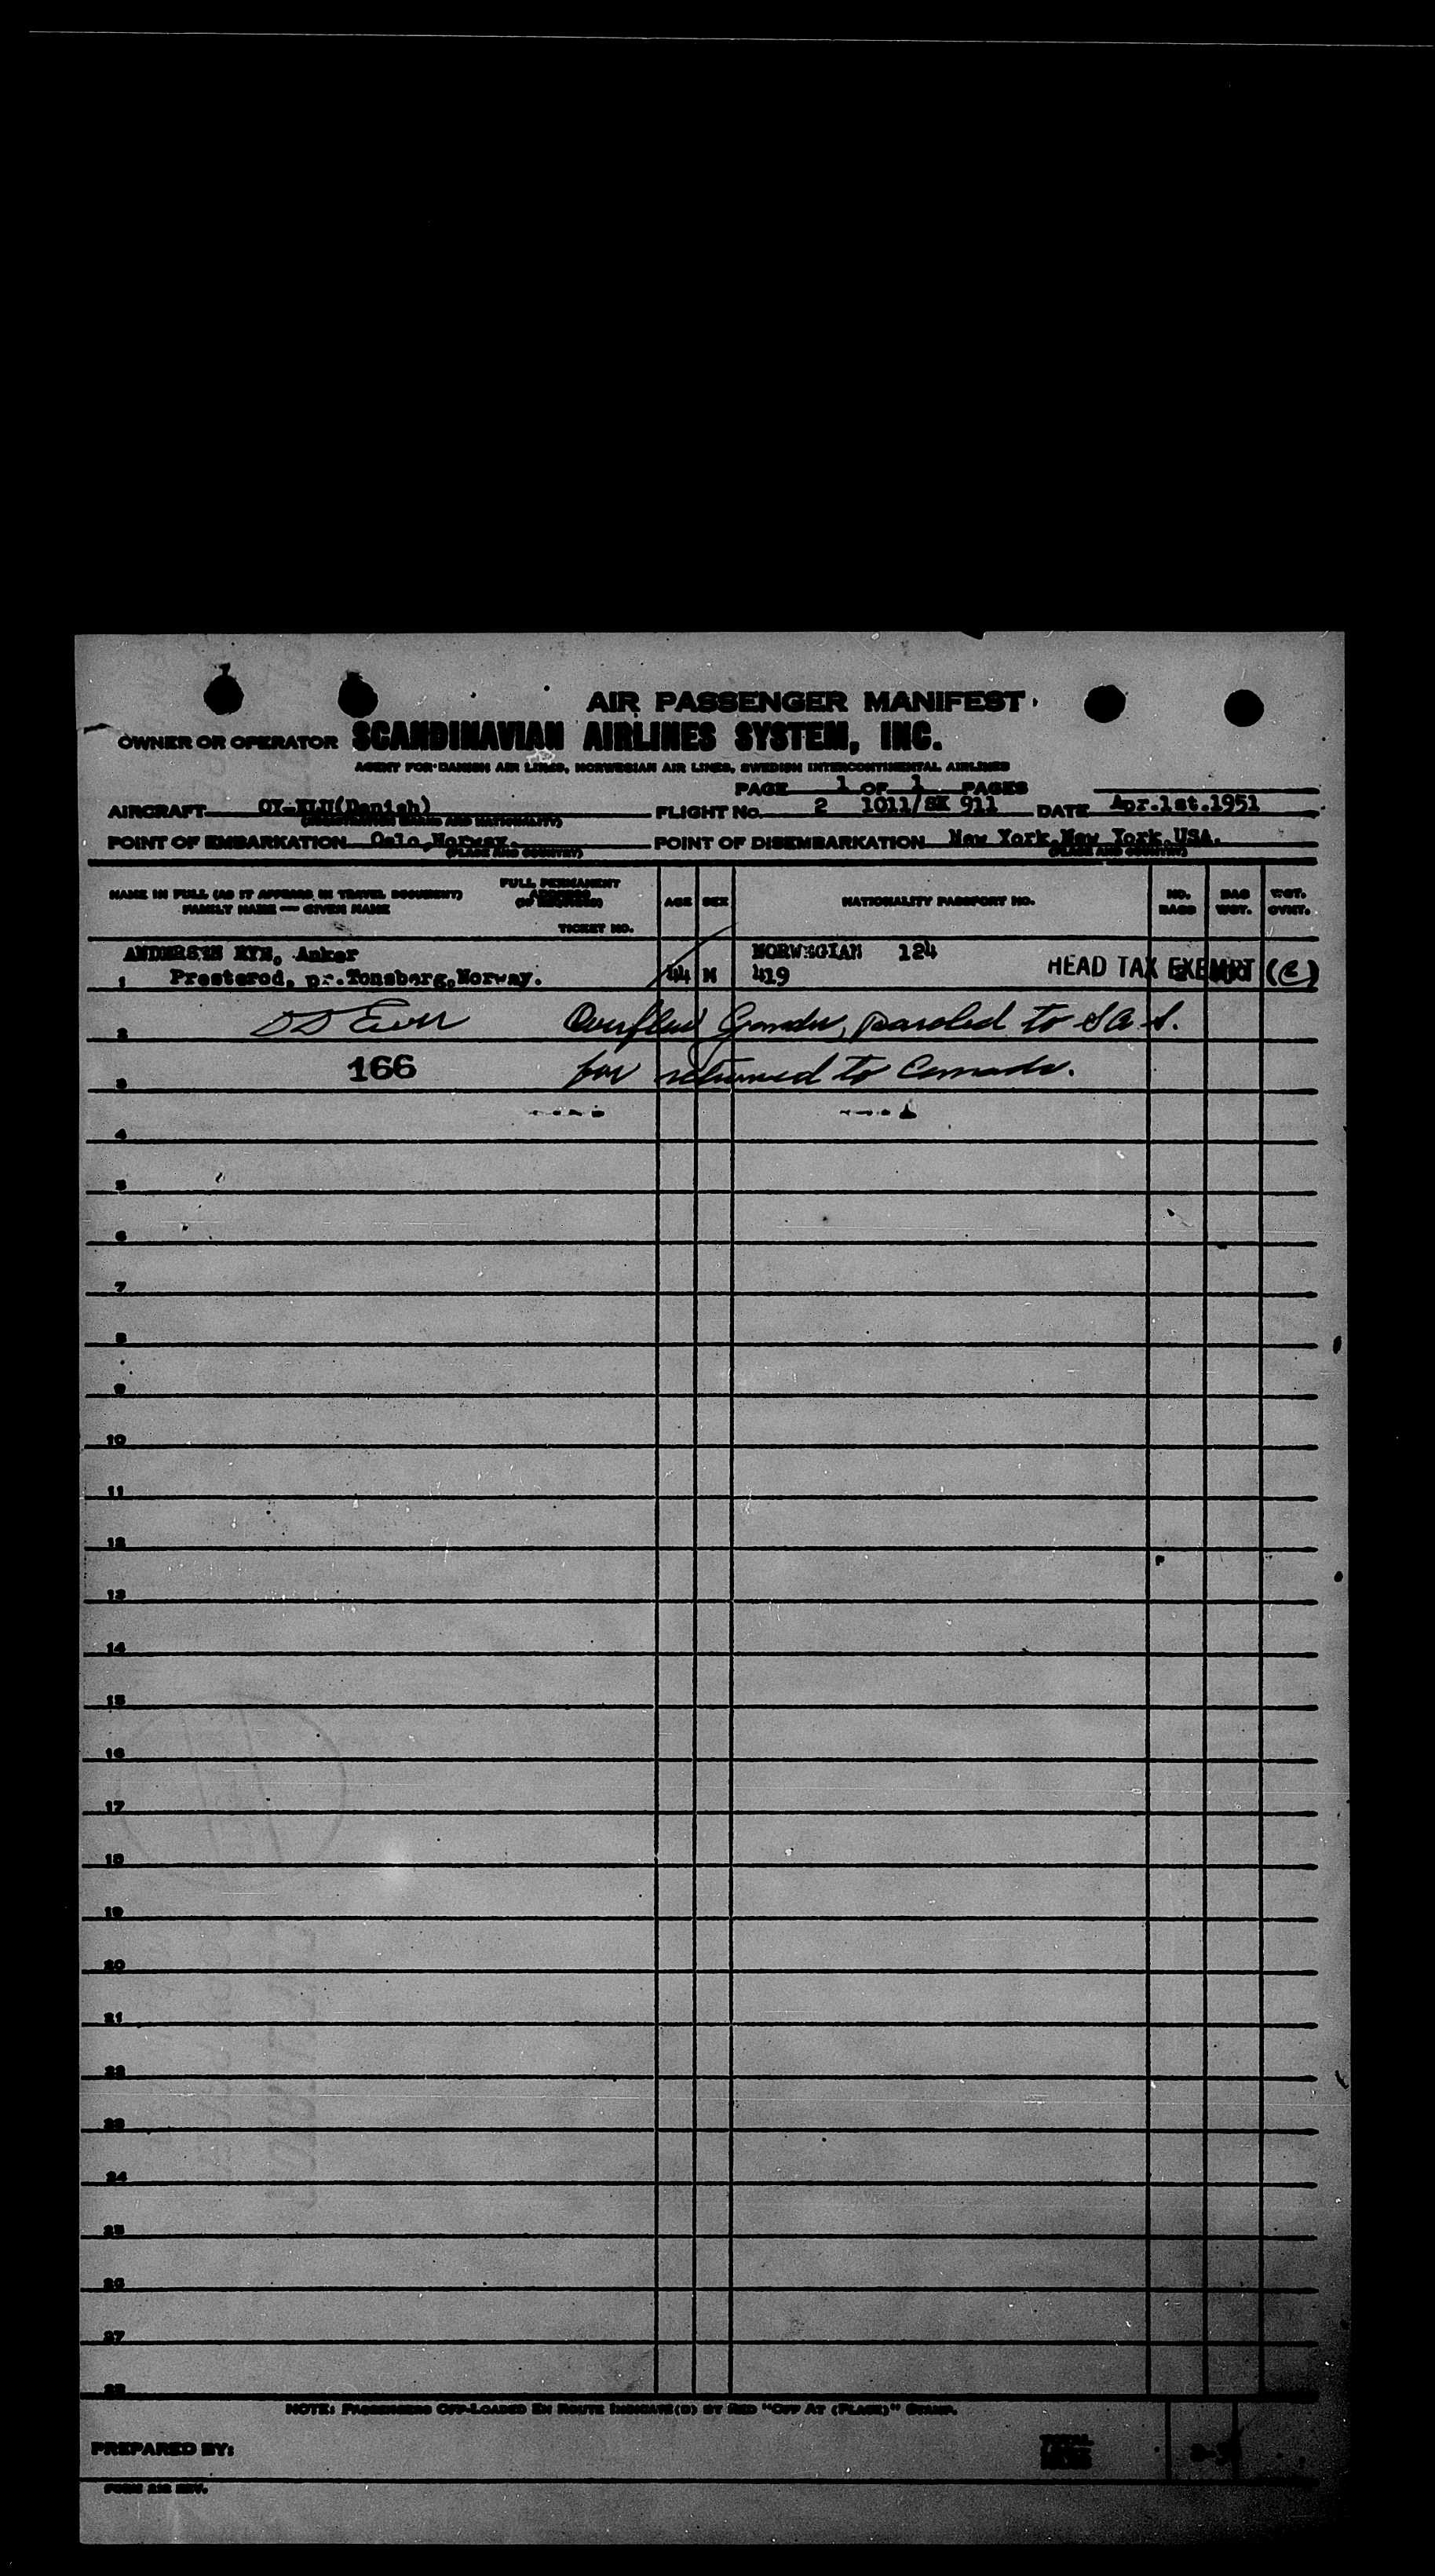 AIR PASSENGER MANIFEST
OWNER OR OPERATOR SCANDINAVIAN AIRLINES SYSTEM, INC.
AGENT FOR DANISH AIR LINES, NORWEGIAN AIR LINES, SWEDISH INTERCONTINENTAL AIRLINES
PAGE 1 OF 1 PAGES
AIRCRAFT (Danish) FLIGHT NO. 2 1011/SK 911 DATE Apr.1st.1951
(REGISTRATION BRAND AND NATIONALITY)
POINT OF EMBARKATION Oslo,Norway. POINT OF DISEMBARKATION New York,New York,USA.
(PLACE AND COUNTRY) (PLACE AND COUNTRY)
NAME IN FULL (AS IT APPEARS IN TRAVEL DOCUMENT) FAMILY NAME — GIVEN NAME
FULL PERMANENT ADDRESS (IF REQUIRED)
TICKET NO.
AGE SEX NATIONALITY PASSPORT NO. NO. BAGS BAG WGT. WGT. OVHT.
ANDERSEN Anker NORWEGIAN 124
1 Presterod, pr.Tonsberg,Norway. 44 M 419 HEAD TAX EXEMPT
2 Overflew Gander, paroled to S.A.S.
3 166 for returned to Canada.
4
5
6
7
8
9
10
11
12
13
14
15
16
17
18
19
20
21
22
23
24
25
26
27
28
NOTE: PASSENGERS OFF-LOADED EN ROUTE INDICATE(D) BY RED "OFF AT (PLACE)" STAMP.
PREPARED BY: TOTAL